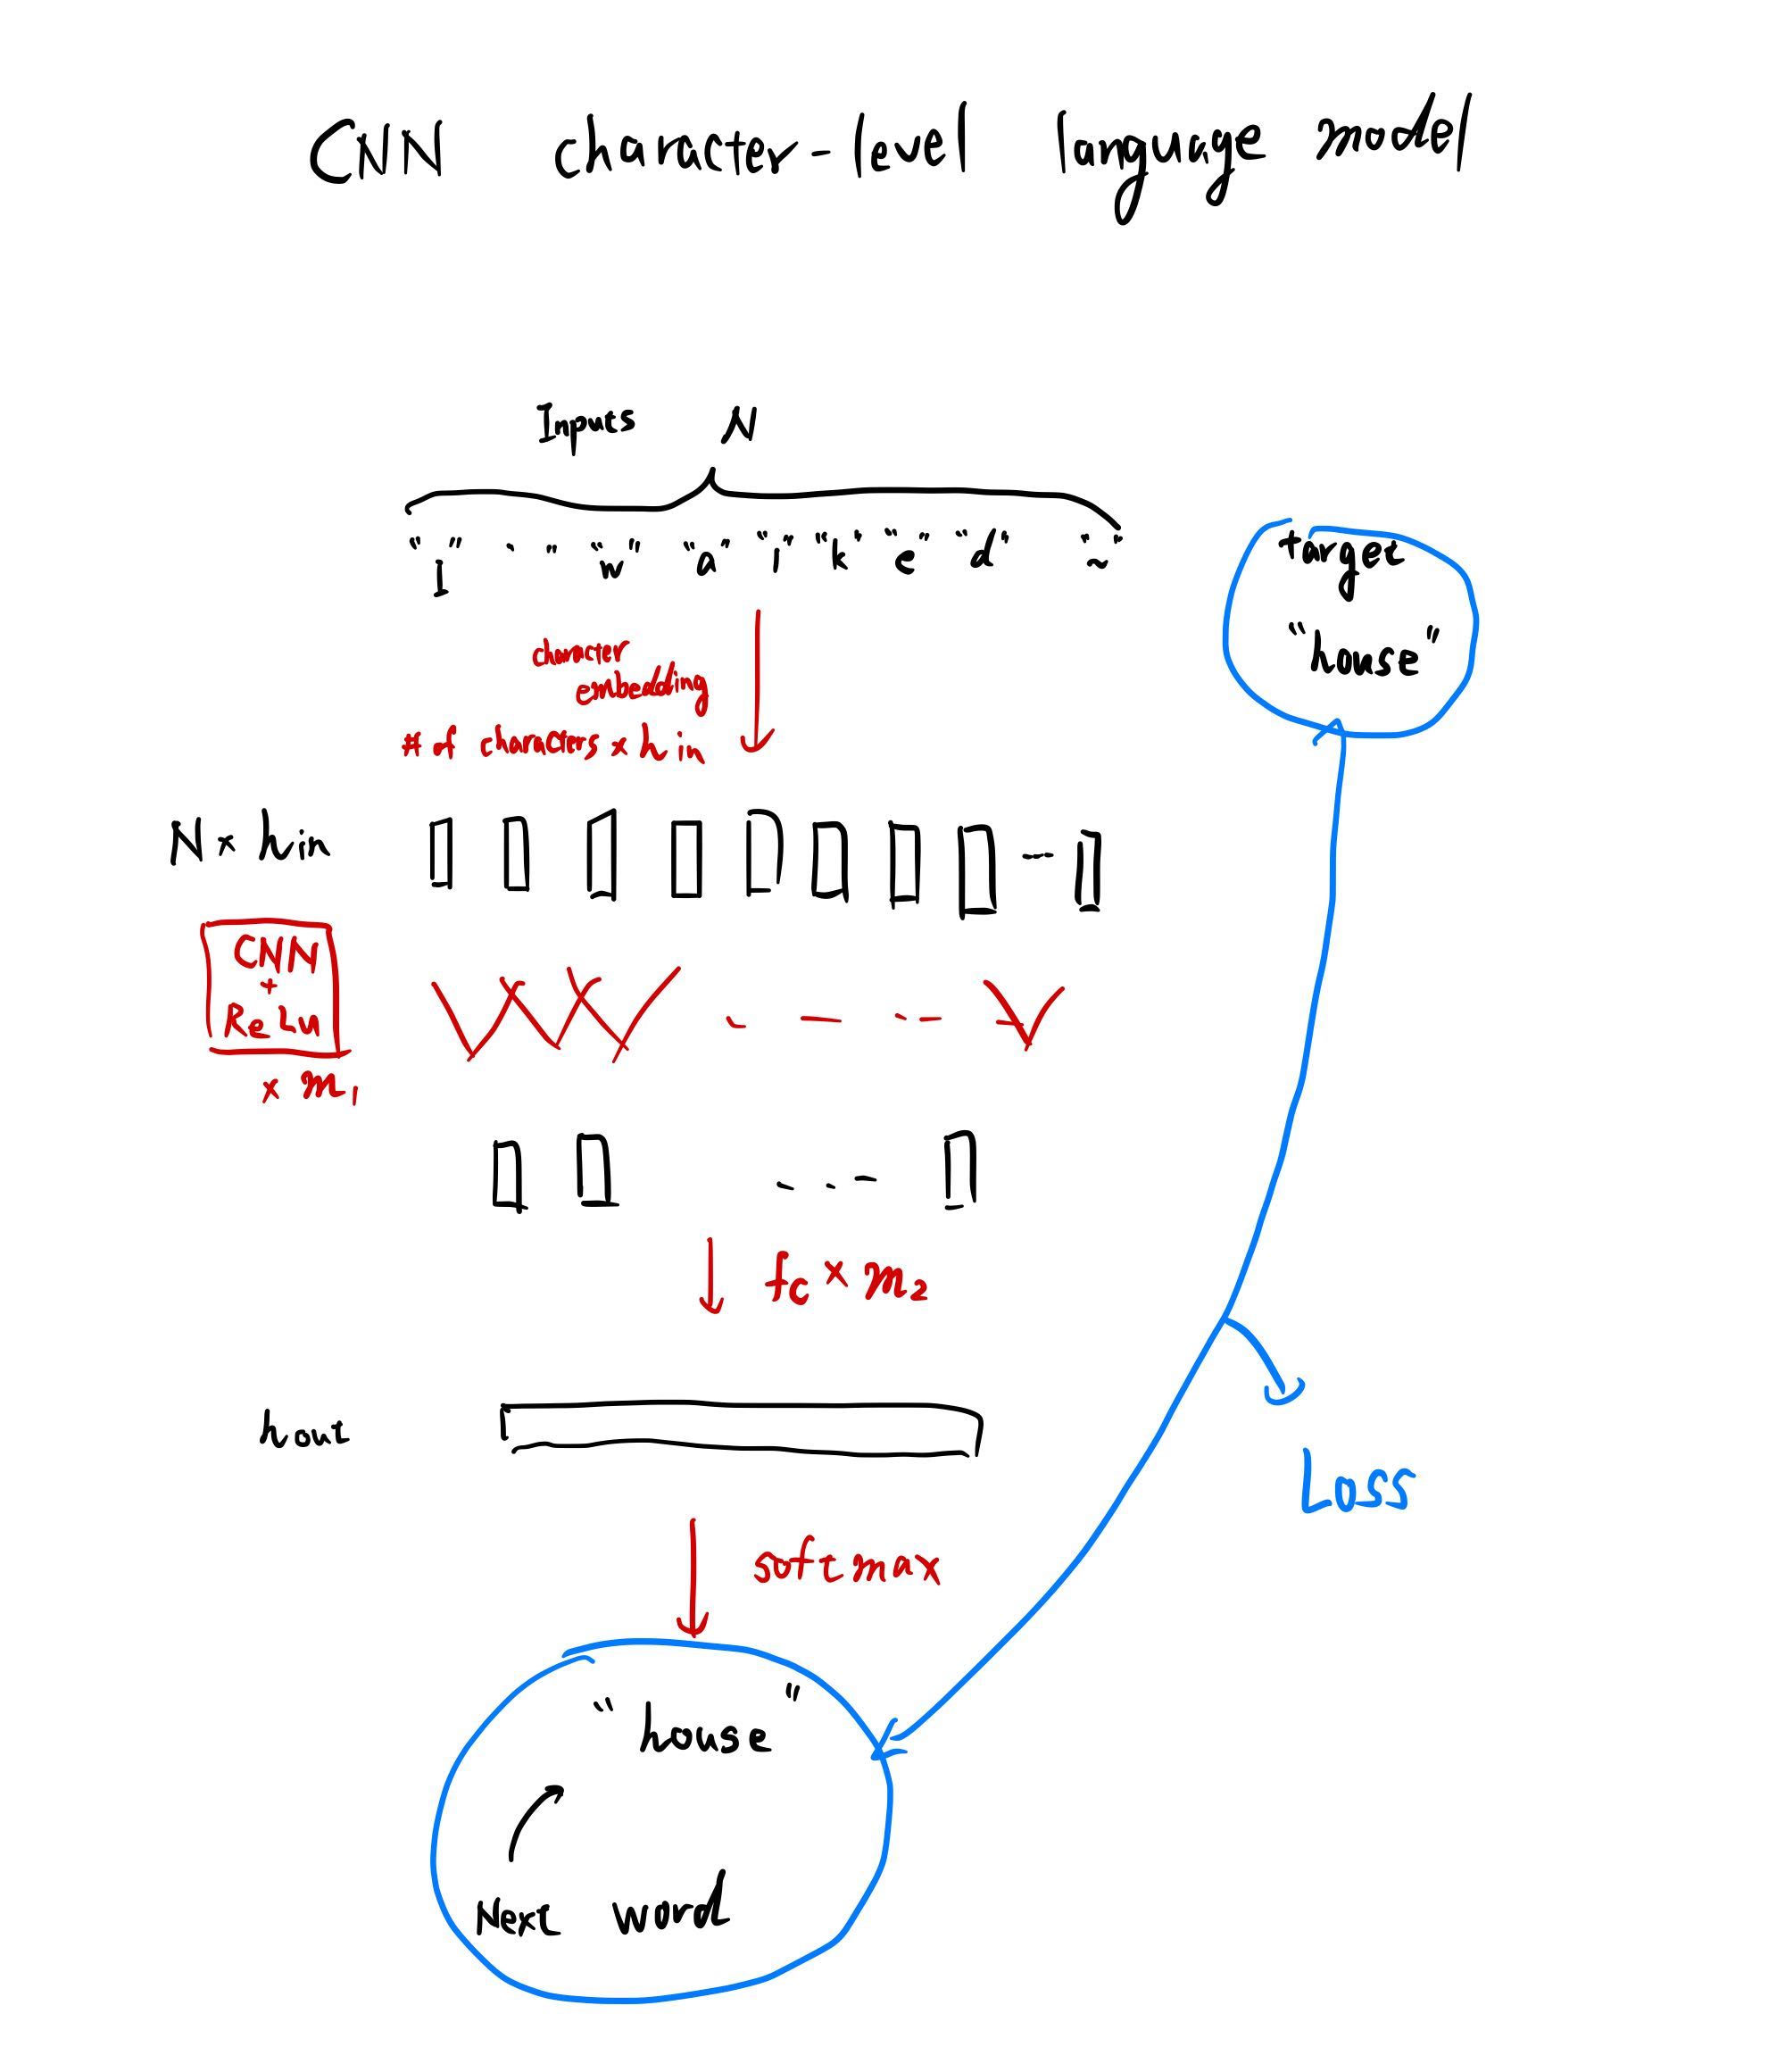 CNN character-level language model
Inputs N
"I" " " "w" "a" "l" "k" "e" "d" " "
target
"house"
character
embedding
# of characters x hin
N x hin
CNN
+
ReLu
x m1
- - - -
fc x m2
hout
softmax
Loss
"house"
Next word